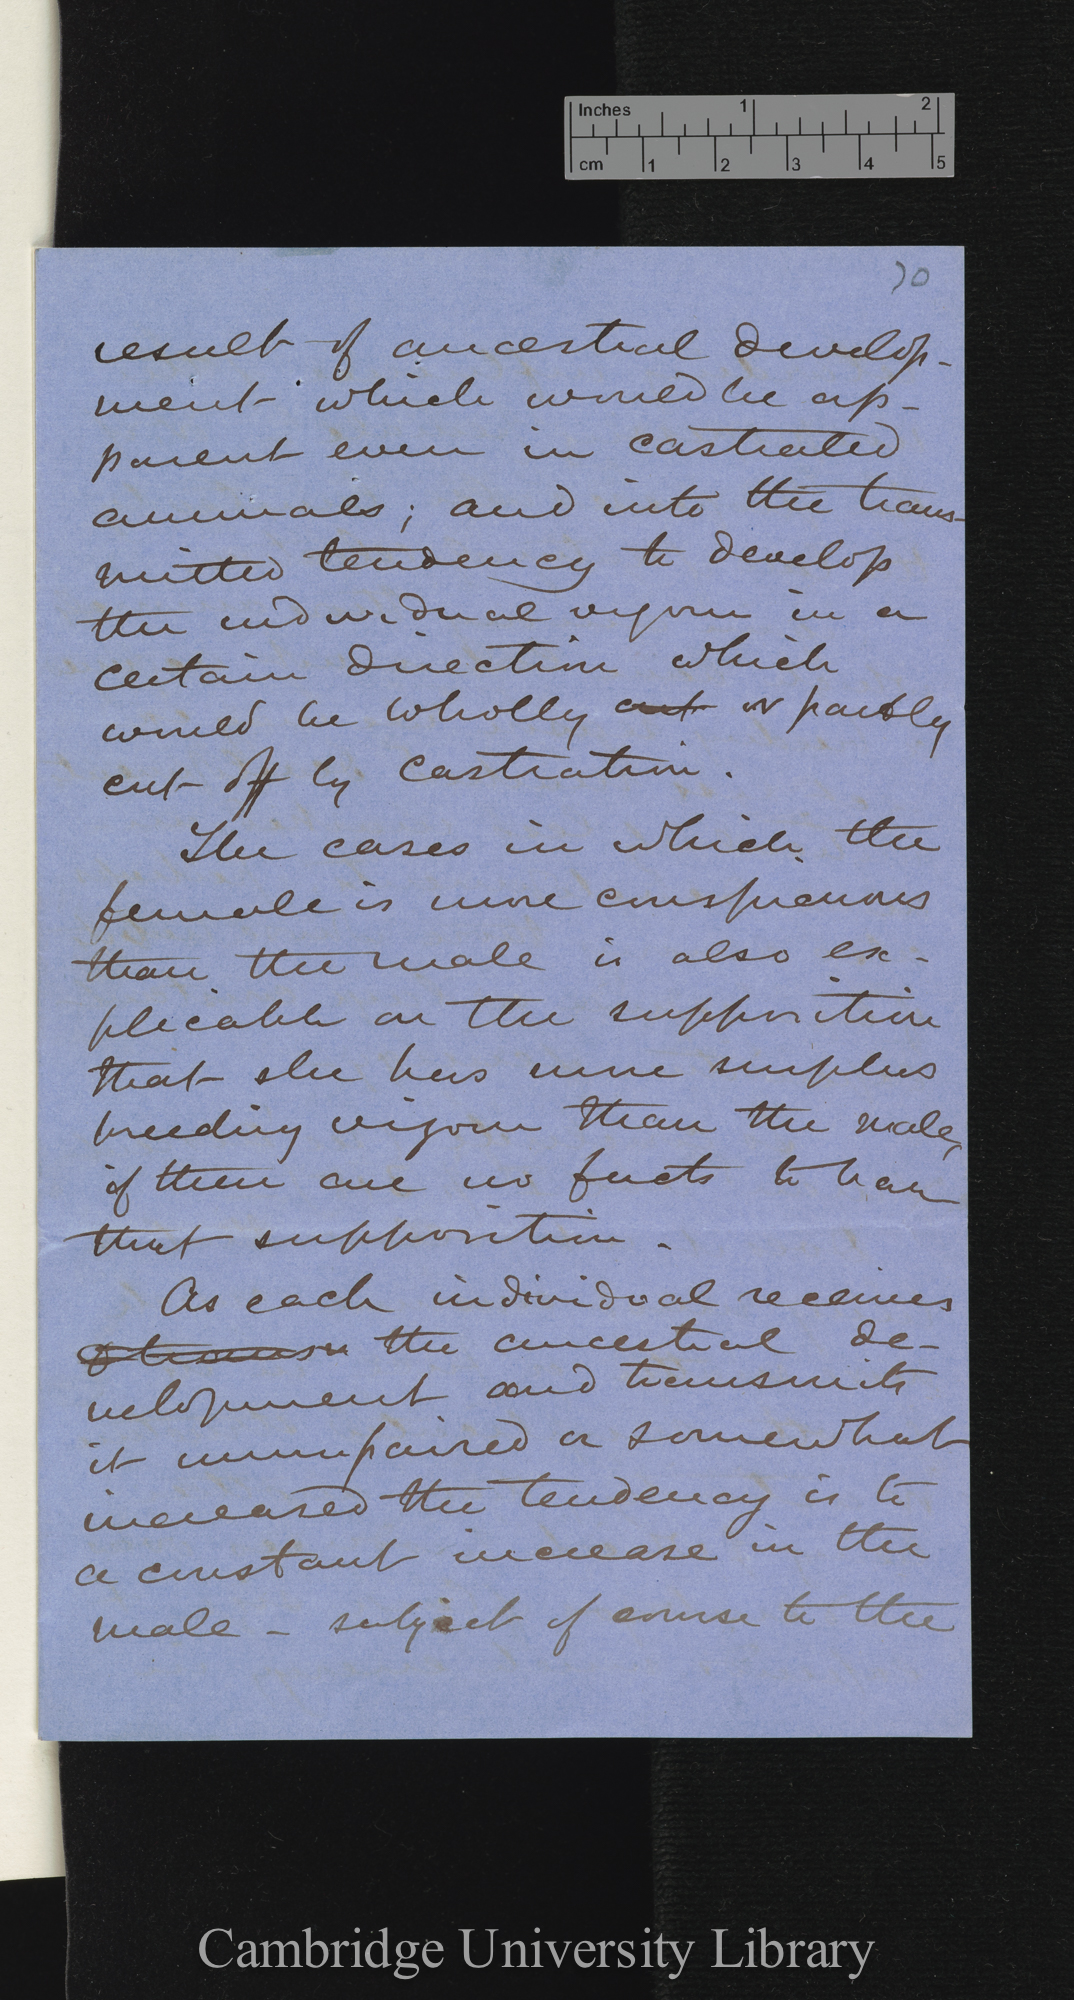 Inches 1 2
cm 1 2 3 4 5
70
result of ancestral develop-
ment which would be ap-
parent even in castrated
animals; and into the trans-
mitted tendency to develop
the individual vigour in a
certain direction which
would be wholly cut or partly
cut off by castration.
The cases in which the
female is more conspicuous
than the male is also ex-
plicable on the supposition
that she has more surplus
breeding vigour than the male,
if there are no facts to bar
that supposition.
As each individual receives
the ancestral de-
velopment and transmits
it unimpaired or somewhat
increased the tendency is to
a constant increase in the
male - subject of course to the
Cambridge University Library